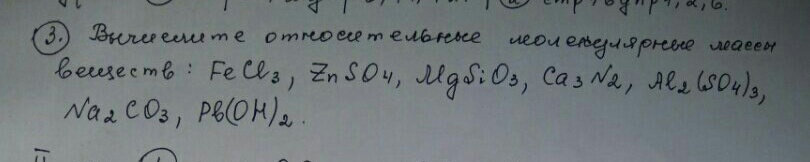 ③. Вычислите относительные молекулярные массы
веществ: FeCl₃, ZnSO₄, MgSiO₃, Ca₃N₂, Al₂(SO₄)₃,
Na₂CO₃, Pb(OH)₂.